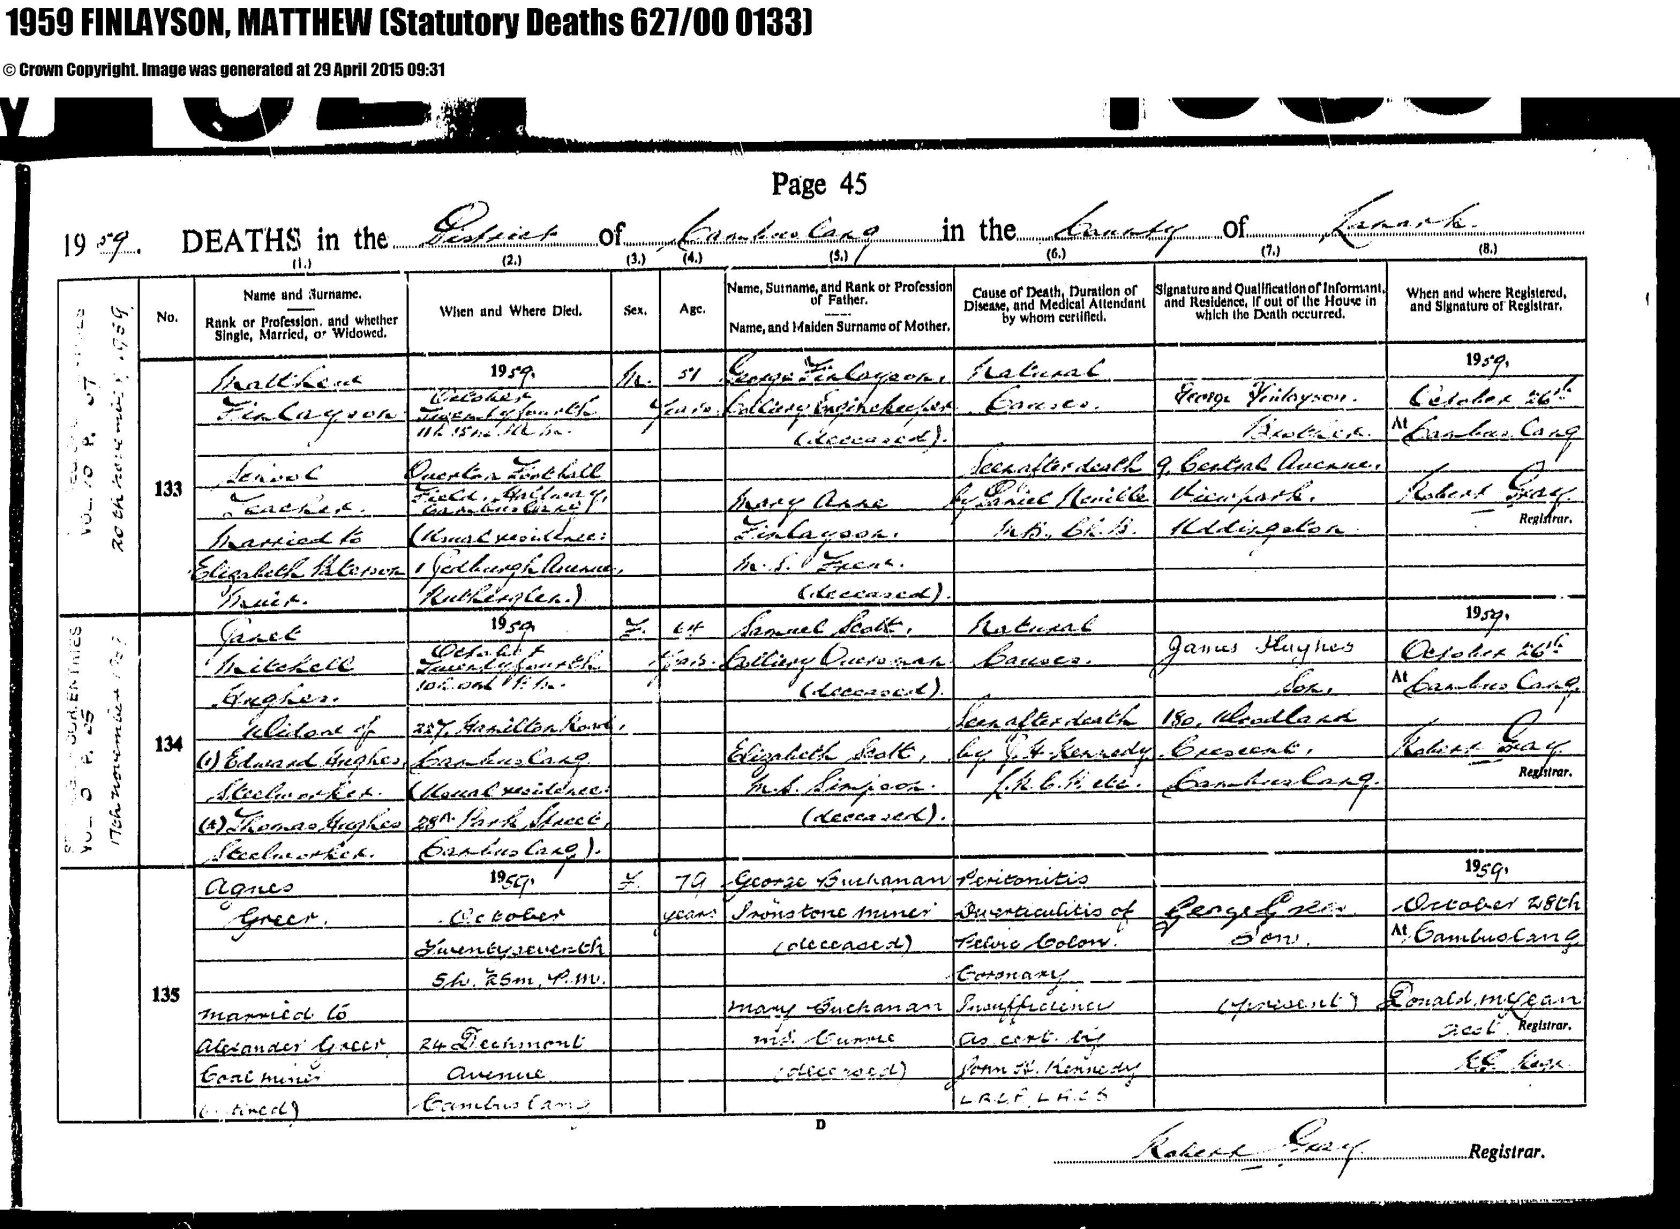 1959 FINLAYSON, MATTHEW (Statutory Deaths 627/00 0133)
© Crown Copyright. Image was generated at 29 April 2015 09:31
Page 45
1959. DEATHS in the District of Cambuslang in the County of Lanark.
(1.) (2.) (3.) (4.) (5.) (6.) (7.) (8.)
No.
Name and Surname.
Rank or Profession, and whether
Single, Married, or Widowed.
When and Where Died.
Sex.
Age.
Name, Surname, and Rank or Profession
of Father.
Name, and Maiden Surname of Mother.
Cause of Death, Duration of
Disease, and Medical Attendant
by whom certified.
Signature and Qualification of Informant,
and Residence, if out of the House in
which the Death occurred.
When and where Registered,
and Signature of Registrar.
20th November 1959
133
Matthew
Finlayson
School
Teacher.
Married to
Elizabeth Paterson
Muir.
1959.
October
Twenty fourth
Overton Football
Field, Hallway,
Cambuslang
(Usual residence:
1 Jedburgh Avenue,
Rutherglen.)
M.
51
years.
George Finlayson,
Colliery Enginekeeper
(deceased).
Mary Anne
Finlayson.
M.S.
(deceased).
Natural
Causes.
Seen after death
by Daniel Neville
M.B., Ch.B.
George Finlayson.
Brother.
9, Central Avenue,
Viewpark.
Uddingston
1959.
October 26th
At Cambuslang
Robert Gray
Registrar.
17th November 1959
134
Janet
Mitchell
Hughes.
Widow of
(1) Edward Hughes,
Steelworker.
(2) Thomas Hughes
Steelworker.
1959.
October
Twenty fourth
227, Hamilton Road,
Cambuslang
(Usual residence:
28A Park Street,
Cambuslang).
F.
64
years.
Samuel Scott,
Colliery Oversman
(deceased).
Elizabeth Scott,
M.S. Simpson.
(deceased).
Natural
Causes.
Seen after death
by J. H. Kennedy
L.R.C.P. etc.
James Hughes
Son,
180, Woodland
Crescent,
Cambuslang.
1959.
October 26th
At Cambuslang,
Robert Gray
Registrar.
135
Agnes
Greer.
Married to
Alexander Greer
Coal miner
(retired)
1959.
October
Twenty seventh
5h. 25m. P.M.
24 Dechmont
Avenue
Cambuslang
F.
79
years
George Buchanan
Ironstone Miner
(deceased)
Mary Buchanan
M.S. Currie
(deceased)
Peritonitis
Diverticulitis of
Pelvic Colon.
Coronary
Insufficiency
As cert. by
John H. Kennedy
L.R.C.P., L.R.C.S
George Greer
Son.
(present)
1959.
October 28th
At Cambuslang
Donald McLean
Asst. Registrar.
D
Robert Gray Registrar.